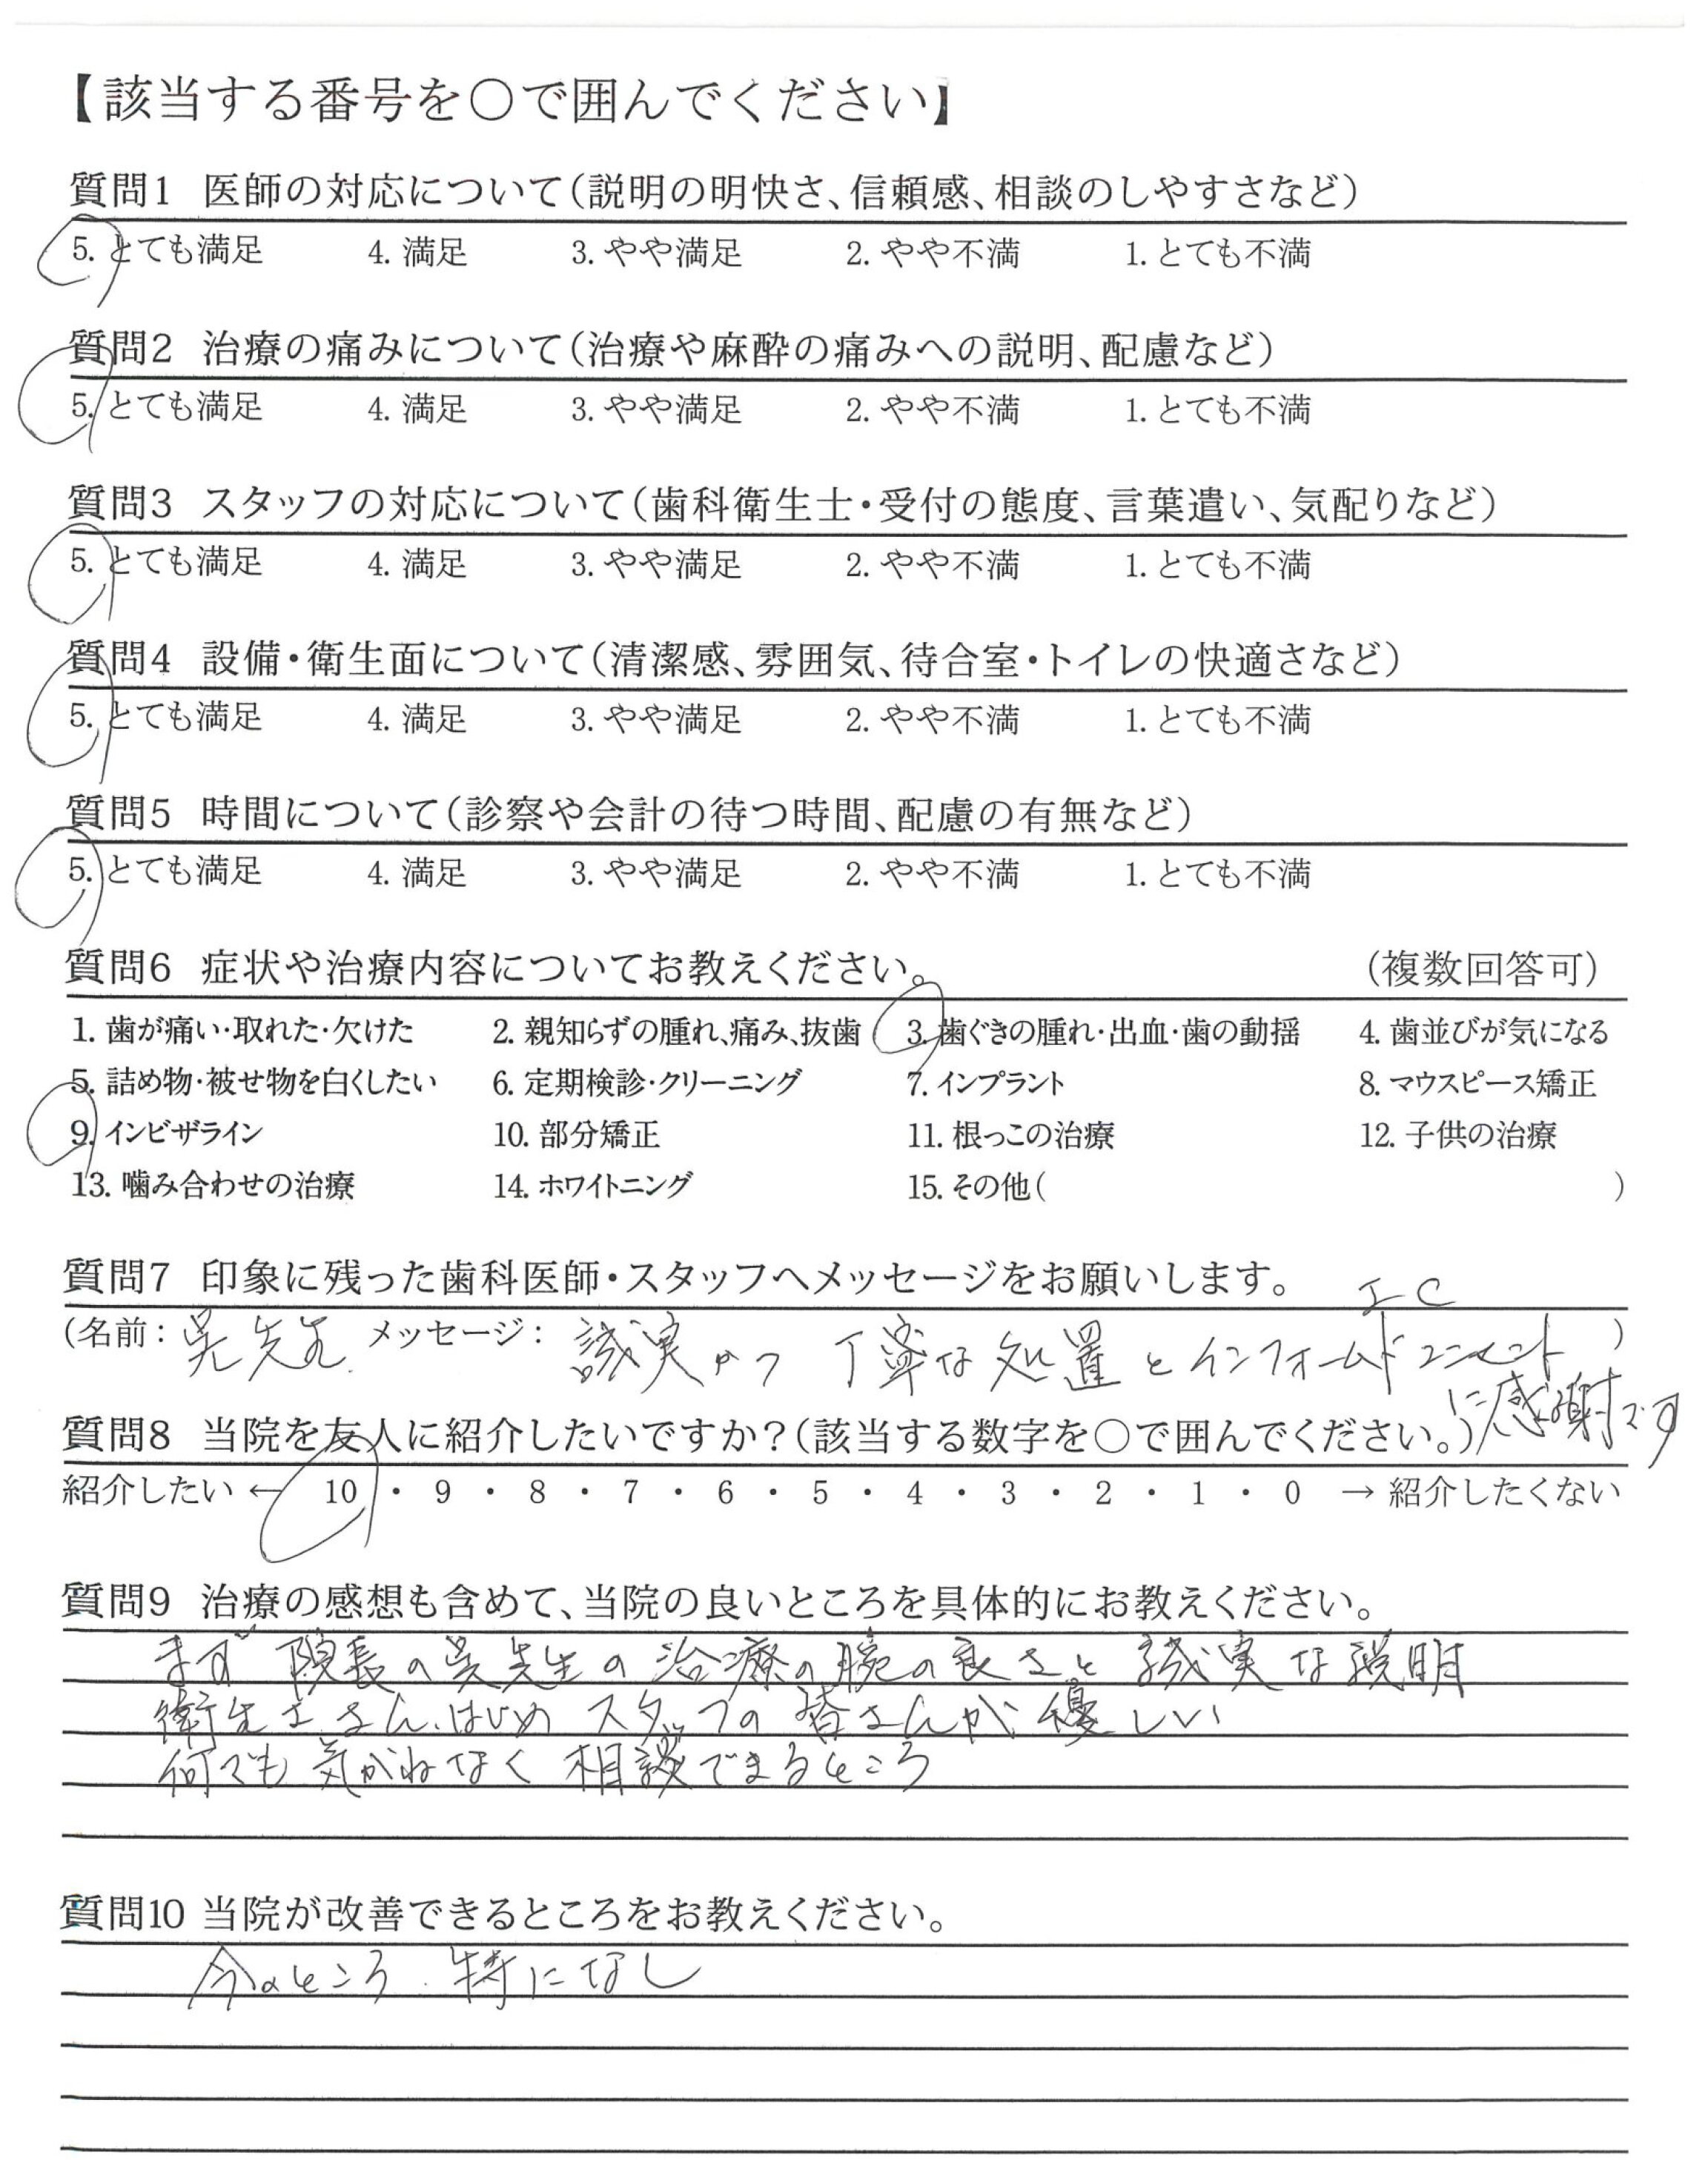 【該当する番号を○で囲んでください】
質問1 医師の対応について(説明の明快さ、信頼感、相談のしやすさなど)
5. とても満足 4. 満足 3. やや満足 2. やや不満 1. とても不満
質問2 治療の痛みについて(治療や麻酔の痛みへの説明、配慮など)
5. とても満足 4. 満足 3. やや満足 2. やや不満 1. とても不満
質問3 スタッフの対応について(歯科衛生士・受付の態度、言葉遣い、気配りなど)
5. とても満足 4. 満足 3. やや満足 2. やや不満 1. とても不満
質問4 設備・衛生面について(清潔感、雰囲気、待合室・トイレの快適さなど)
5. とても満足 4. 満足 3. やや満足 2. やや不満 1. とても不満
質問5 時間について(診察や会計の待つ時間、配慮の有無など)
5. とても満足 4. 満足 3. やや満足 2. やや不満 1. とても不満
質問6 症状や治療内容についてお教えください。 (複数回答可)
1. 歯が痛い・取れた・欠けた 2. 親知らずの腫れ、痛み、抜歯 3. 歯ぐきの腫れ・出血・歯の動揺 4. 歯並びが気になる
5. 詰め物・被せ物を白くしたい 6. 定期検診・クリーニング 7. インプラント 8. マウスピース矯正
9. インビザライン 10. 部分矯正 11. 根っこの治療 12. 子供の治療
13. 噛み合わせの治療 14. ホワイトニング 15. その他( )
質問7 印象に残った歯科医師・スタッフへメッセージをお願いします。
IC
(名前: 呉先生 メッセージ: 誠実かつ 丁寧な処置とインフォームドコンセント )
に感謝です
質問8 当院を友人に紹介したいですか?(該当する数字を○で囲んでください。)
紹介したい ← 10 ・ 9 ・ 8 ・ 7 ・ 6 ・ 5 ・ 4 ・ 3 ・ 2 ・ 1 ・ 0 → 紹介したくない
質問9 治療の感想も含めて、当院の良いところを具体的にお教えください。
まず 院長の呉先生の治療の腕の良さと 誠実な説明
衛生士さん、はじめ スタッフの皆さんが優しい
何でも気がねなく相談できるところ
質問10 当院が改善できるところをお教えください。
今のところ、特になし